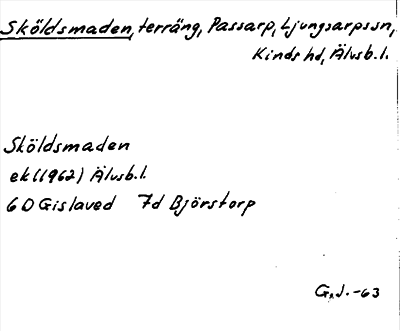 Sköldsmaden, terräng, Passarp, Ljungsarps sn,
Kinds hd, Älvsb. l.
Sköldsmaden
ek (1962) Älvsb. l.
6D Gislaved 7d Björstorp
G.J. -63